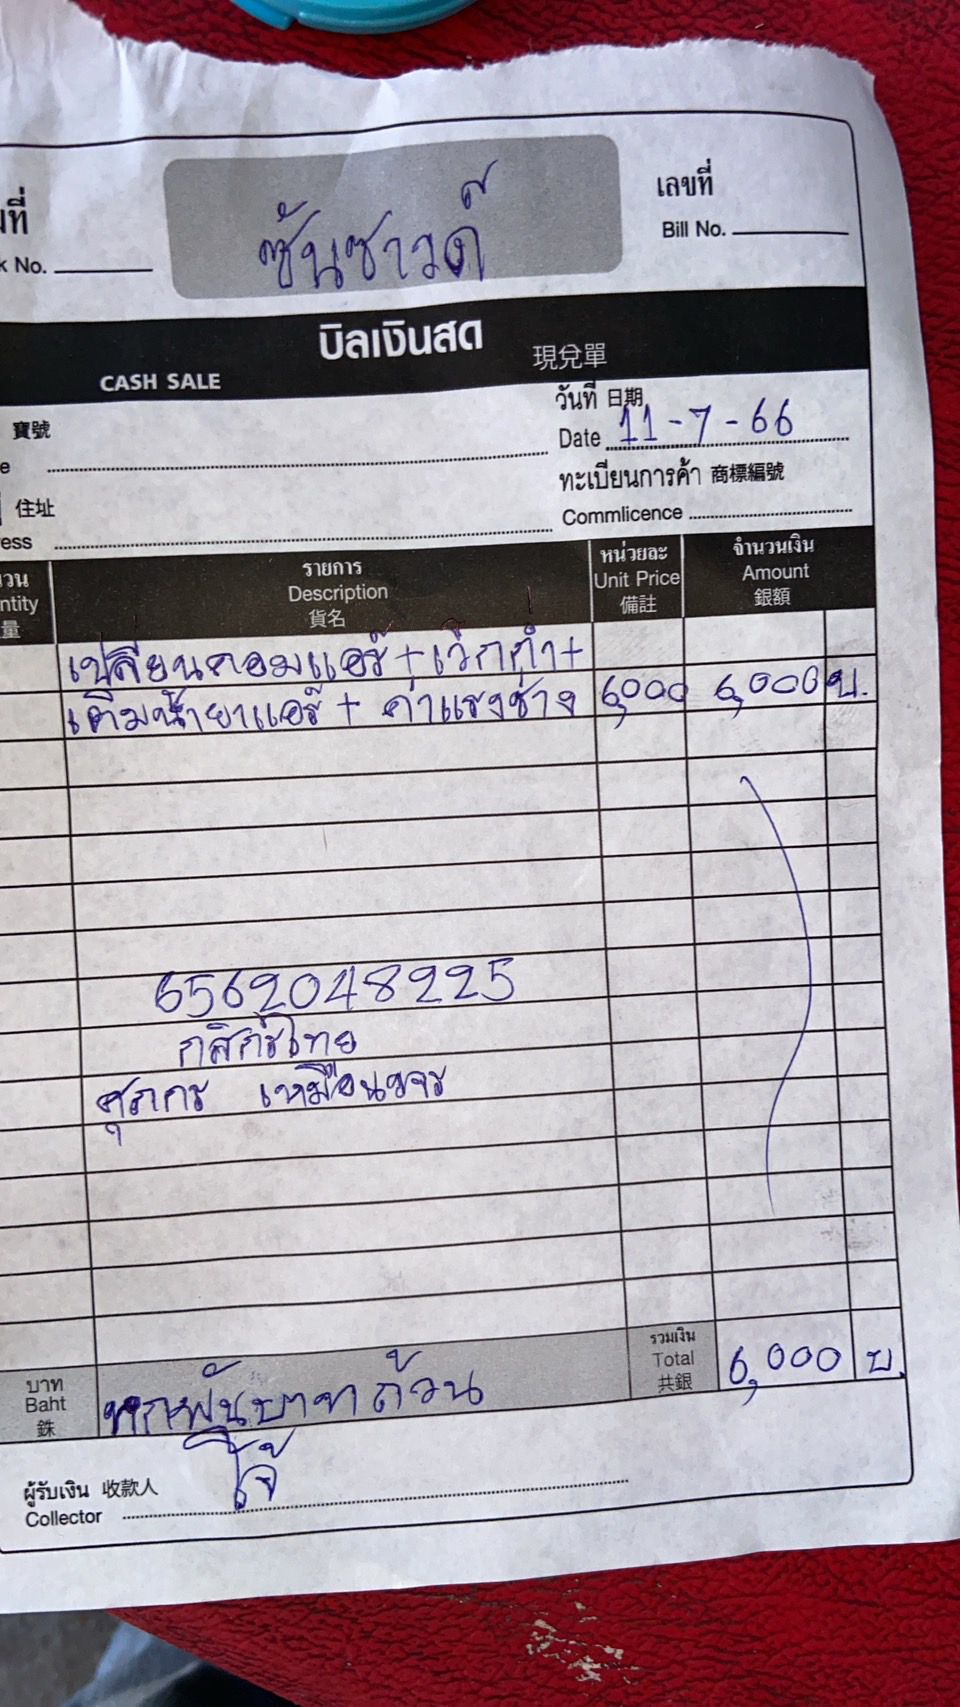 ซันซาวด์
เลขที่
Bill No.
No.
บิลเงินสด 現兌單
CASH SALE
วันที่ 日期
Date 11-7-66
寶號
ทะเบียนการค้า 商標編號
Commlicence
住址
รายการ
Description
貨名
หน่วยละ
Unit Price
備註
จำนวนเงิน
Amount
銀額
量
เปลี่ยนคอมแอร์+เวิกกำ+
เติมน้ำยาแอร์+ค่าแรงช่าง 6,000 6,000 บ.
6562048225
กสิกรไทย
ศุภกร เหมือนขจร
บาท
Baht
銖
หกพันบาทถ้วน
รวมเงิน
Total
共銀
6,000 บ.
ผู้รับเงิน 收款人
Collector
โจ้